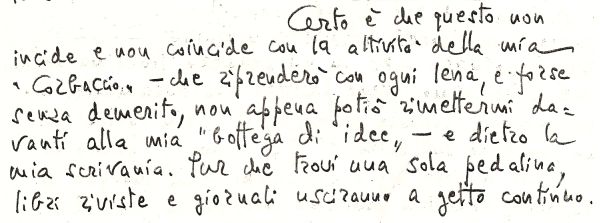 Certo è che questo non
incide e non coincide con la attività della mia
"Corbaccio" – che riprenderò con ogni lena, e forse
senza demerito, non appena potrò rimettermi da=
vanti alla mia "bottega di idee", – e dietro la
mia scrivania. Pur che trovi una sola pedalina,
libri riviste e giornali usciranno a getto continuo.